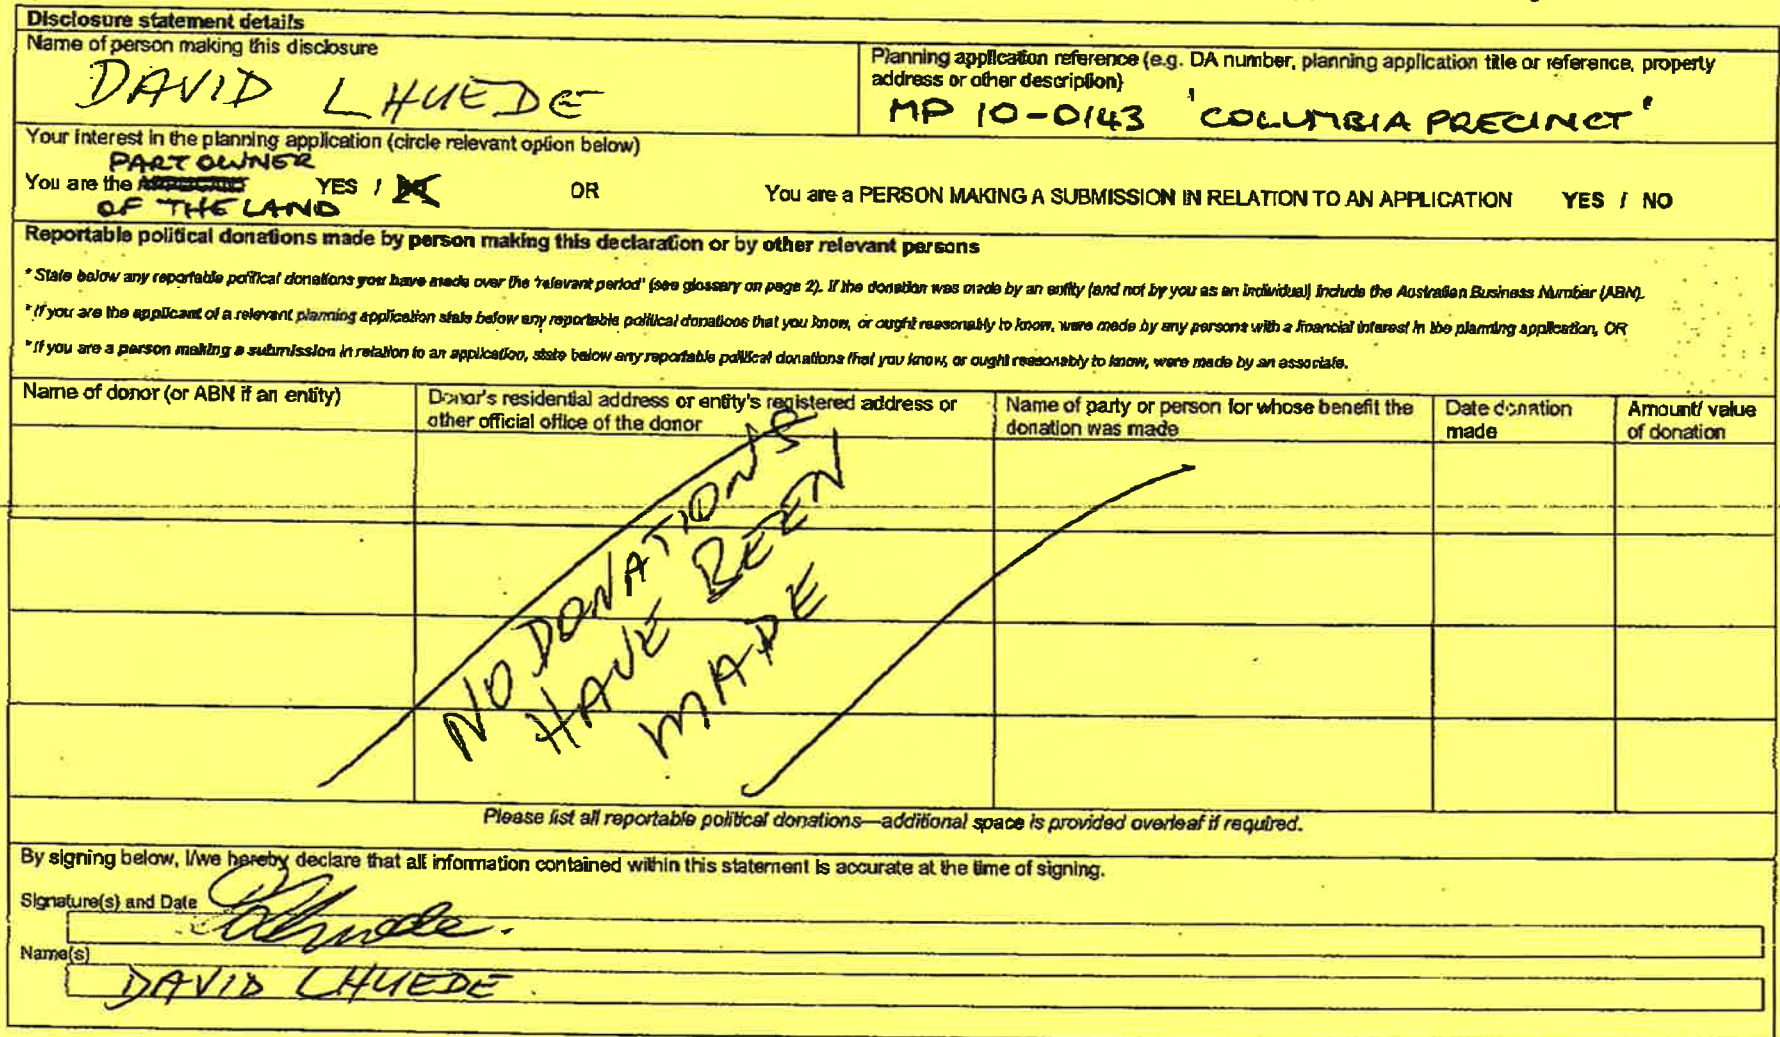 Disclosure statement details
Name of person making this disclosure
DAVID LHUEDE
Planning application reference (e.g. DA number, planning application title or reference, property
address or other description)
MP 10-0143 'COLUMBIA PRECINCT'
Your interest in the planning application (circle relevant option below)
PART OWNER
You are the YES / OR You are a PERSON MAKING A SUBMISSION IN RELATION TO AN APPLICATION YES / NO
OF THE LAND
Reportable political donations made by person making this declaration or by other relevant persons
* State below any reportable political donations you have made over the 'relevant period' (see glossary on page 2). If the donation was made by an entity (and not by you as an individual) include the Australian Business Number (ABN).
* If you are the applicant of a relevant planning application state below any reportable political donations that you know, or ought reasonably to know, were made by any persons with a financial interest in the planning application, OR
* If you are a person making a submission in relation to an application, state below any reportable political donations that you know, or ought reasonably to know, were made by an associate.
Name of donor (or ABN if an entity)
Donor's residential address or entity's registered address or
other official office of the donor
Name of party or person for whose benefit the
donation was made
Date donation
made
Amount/ value
of donation
NO DONATIONS
HAVE BEEN
MADE
Please list all reportable political donations—additional space is provided overleaf if required.
By signing below, I/we hereby declare that all information contained within this statement is accurate at the time of signing.
Signature(s) and Date
Name(s)
DAVID LHUEDE